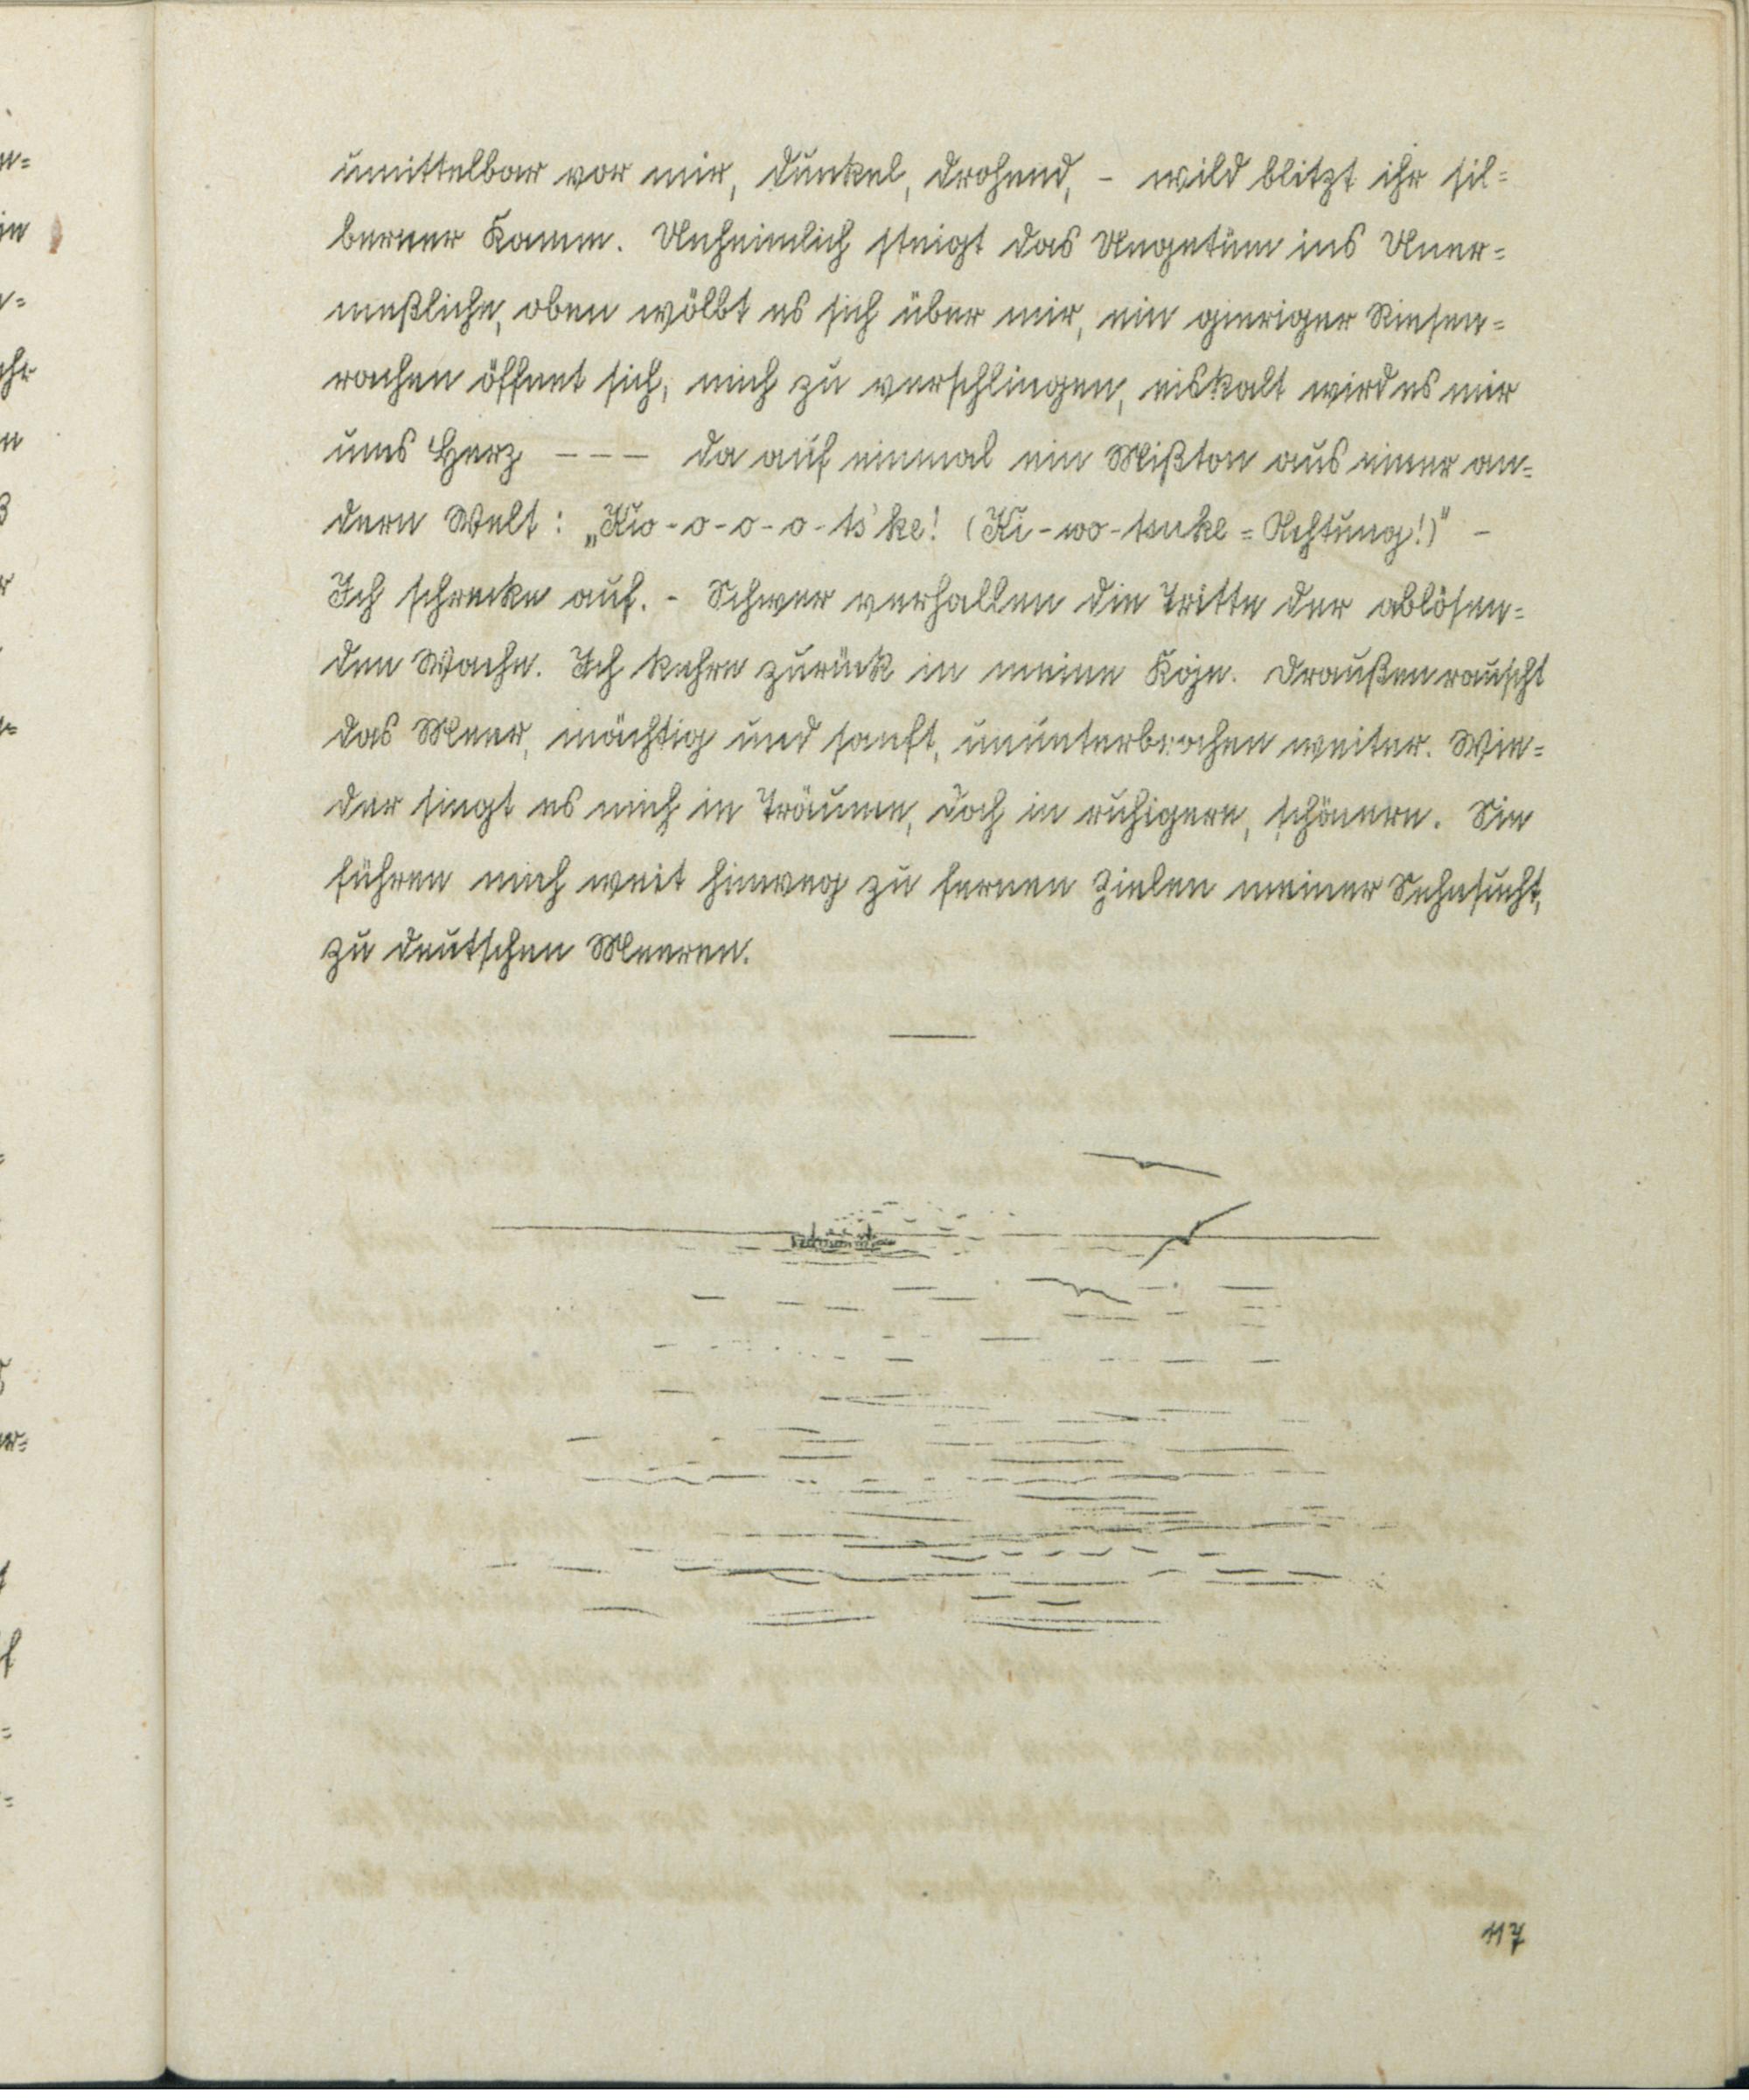 umittelbar vor mir, dunkel, drohend, - wild blitzt ihr sil=
berner Kamm. Unheimlich steigt das Ungetüm ins Uner=
meßliche, oben wölbt es sich über mir, ein gieriger Riesen=
rachen öffnet sich, mich zu verschlingen, eiskalt wird es mir
ums Herz --- da auf einmal ein Mißton aus einer an=
dern Welt: „Kio-o-o-o-ts'ke! (Ki-wo-tsuke = Achtung!)" -
Ich schrecke auf. - Schwer verhallen die Tritte der ablösen=
den Wache. Ich kehre zurück in meine Koje. Draußen rauscht
das Meer, mächtig und sanft, ununterbrochen weiter. Wie=
der singt es mich in Träume, doch in ruhigere, schönere. Sie
führen mich weit hinweg zu fernen Zielen meiner Sehnsucht,
zu deutschen Meeren.
117